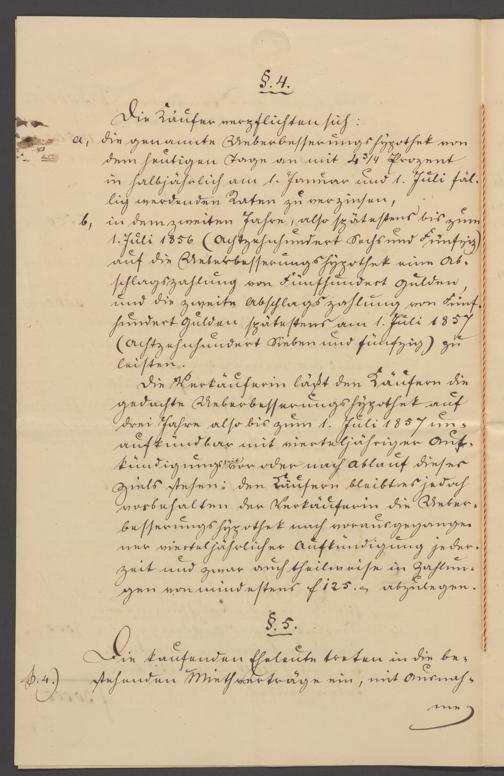 §. 4.
Die Käufer verpflichten sich:
a, die genannte Ueberbesserungshypothek von
dem heutigen Tage an mit 4 3/4 Prozent
in halbjährlich am 1. Januar und 1. Juli fäl-
lig werdenden Raten zu verzinsen,
b, in dem zweiten Jahre, also spätestens bis zum
1. Juli 1856 (Achtzehnhundert Sechs und Fünfzig)
auf die Ueberbesserungshypothek eine Ab-
schlagszahlung von Fünfhundert Gulden,
und die zweite Abschlagszahlung von Fünf-
hundert Gulden spätestens am 1. Juli 1857
(Achtzehnhundert Sieben und fünfzig) zu
leisten.
Die Verkäuferin läßt den Käufern die
gedachte Ueberbesserungshypothek auf
drei Jahre also bis zum 1. Juli 1857 un-
aufkündbar mit vierteljähriger Auf-
kündigung vor oder nach Ablauf dieses
Ziels stehen; den Käufern bleibt es jedoch
vorbehalten der Verkäuferin die Ueber-
besserungshypothek nach vorausgegange-
ner vierteljährlicher Aufkündigung jeder-
zeit und zwar auch theilweise in Zahlun-
gen von mindestens f 125.- abzulegen.
§. 5.
Die kaufenden Eheleute treten in die be-
stehenden Miethverträge ein, mit Ausnah-
me